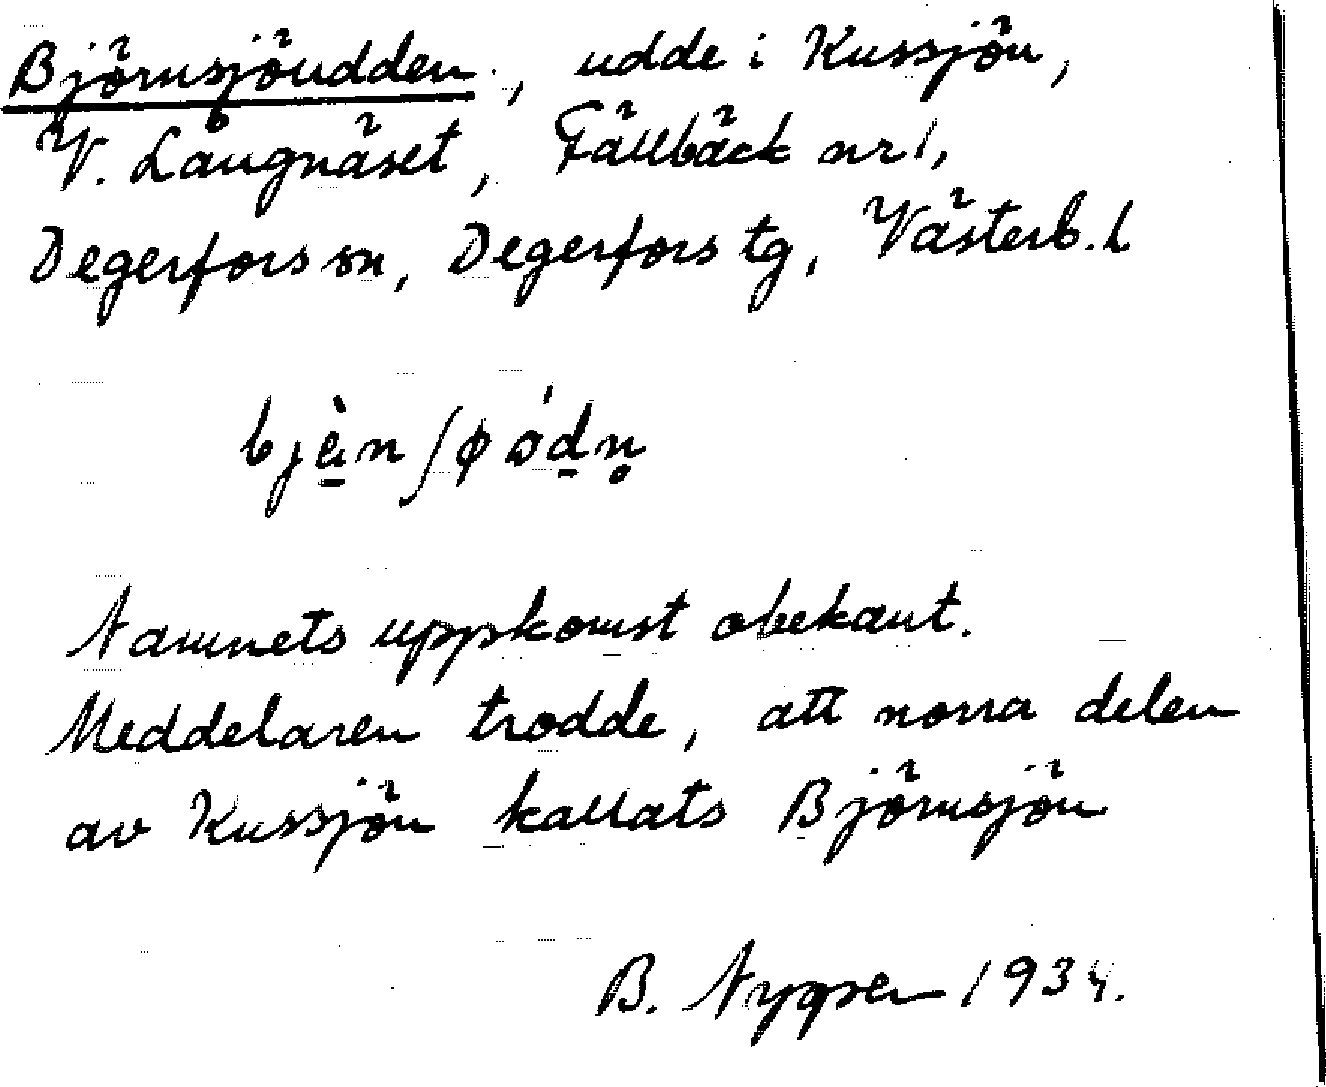 Björnsjöudden, udde i Kussjön,
V. Långnäset, Fällbäck nr 1,
Degerfors sn, Degerfors tg, Västerb. l
Namnets uppkomst obekant.
Meddelaren trodde, att norra delen
av Kussjön kallats Björnsjön
B. Nygren 1934.